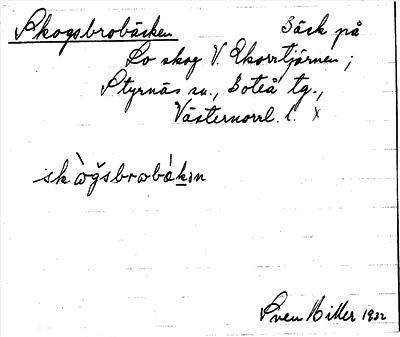 Skogsbrobäcken Bäck på
Lo skog V. Ekorrtjärnen;
Styrnäs sn., Boteå tg.,
Västernorrl. l. x
Sven Hiller 1932